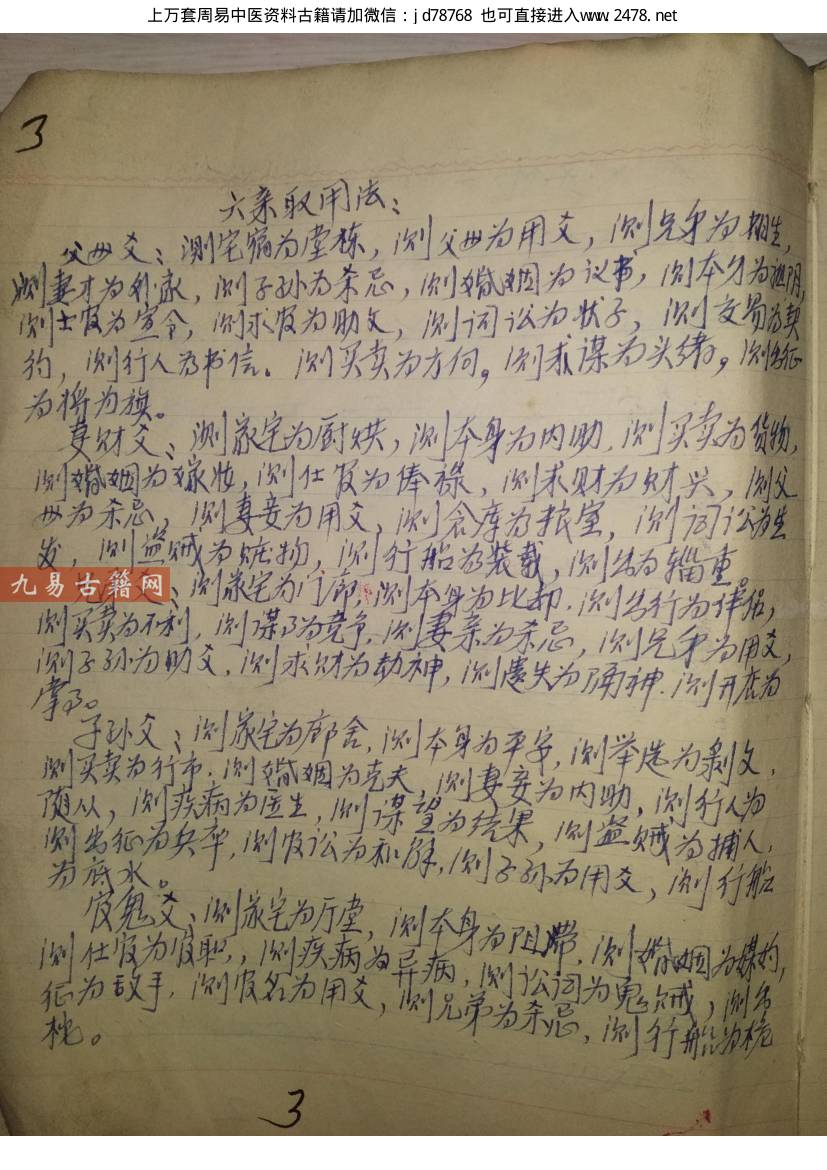 上万套周易中医资料古籍请加微信：jd78768 也可直接进入www.2478.net
3
六亲取用法：
父母爻：测宅宿为堂栋，测父母为用爻，测兄弟为相生，
测妻才为外家，测子孙为杀忌，测婚姻为议书，测本身为
测士官为宣令，测求官为助文，测词讼为状子，测交易为契
约，测行人为书信。测买卖为方何，测求谋为头绪，测出征
为将为旗。
妻财爻：测家宅为厨烘，测本身为内助，测买卖为货物，
测婚姻为嫁妆，测仕官为俸禄，测求财为财兴，测父
母为杀忌，测妻妾为用爻，测仓库为粮室，测词讼为生
发，测盗贼为赃物，测行船为装载，测出为辎重。
九易古籍网
爻：测家宅为门廊，测本身为比劫，测出行为伴侣，
测买卖为不利，测谋为竞争，测妻亲为杀忌，测兄弟为用爻，
测子孙为助爻，测求财为劫神，测遗失为神，测开店为
掌
子孙爻：测家宅为廊舍，测本身为平安，测举选为剥文，
测买卖为行市，测婚姻为克夫，测妻妾为内助，测行人为
随从，测疾病为医生，测谋望为结果，测盗贼为捕人，
测出征为兵卒，测官讼为和解，测子孙为用爻，测行船
为底水。
官鬼爻：测家宅为厅堂，测本身为阻滞，测婚姻为媒妁，
测仕官为官职，测疾病为异病，测讼词为鬼贼，测出
征为敌手，测官名为用爻，测兄弟为杀忌，测行船为桅
桅。
3